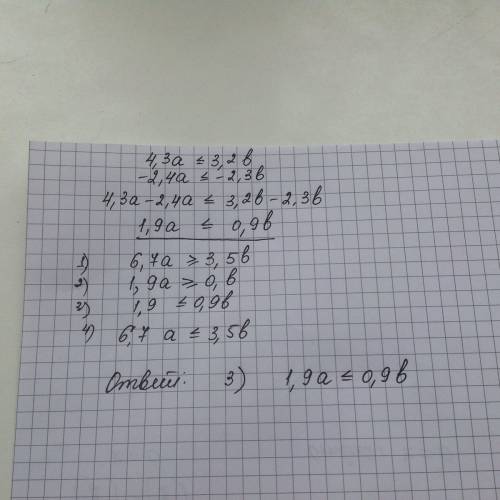 4,3а ≤ 3,2в
-2,4а ≤ -2,3в
4,3а-2,4а ≤ 3,2в-2,3в
1,9а ≤ 0,9в
1) 6,7а ≥ 3,5в
2) 1,9а ≥ 0,в
3) 1,9 ≤ 0,9в
4) 6,7 а ≤ 3,5в
Ответ: 3) 1,9а ≤ 0,9в